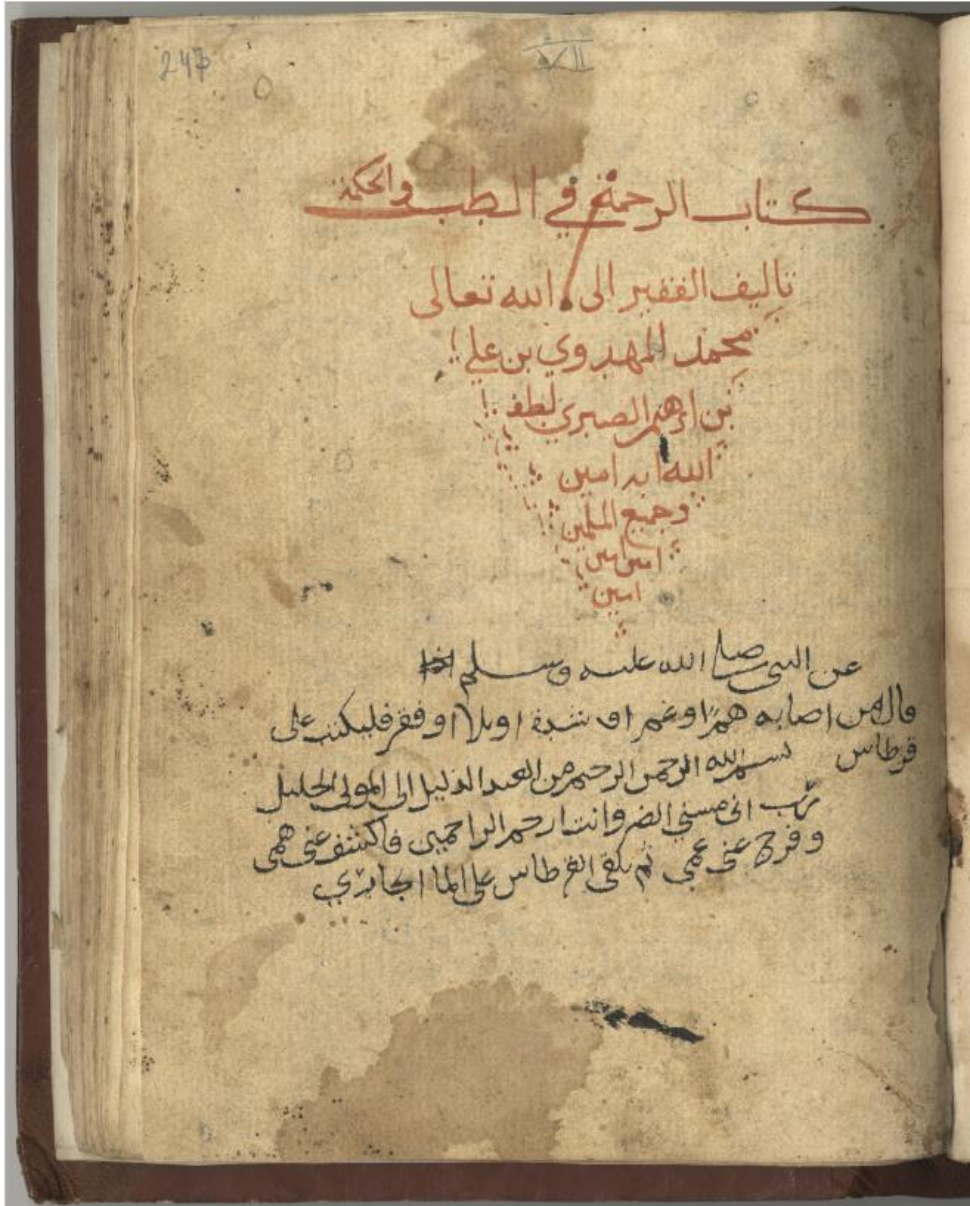 247
VII
كتاب الرحمة في الطب والحكمة
تاليف الفقير الى الله تعالى
محمد المهدوي بن علي
بن ابرهيم الصبري لطف
الله به امين
وجميع المسلمين
امين امين
امين
عن النبي صلى الله عليه وسلم
قال من اصابه هم او غم او شدة او بلا او فقر فليكتب على
قرطاس بسم الله الرحمن الرحيم من العبد الذليل الى المولى الجليل
رب اني مسني الضر وانت ارحم الراحمين فاكشف عني همي
وفرج عني غمي ثم يلقي القرطاس على الما الجاري